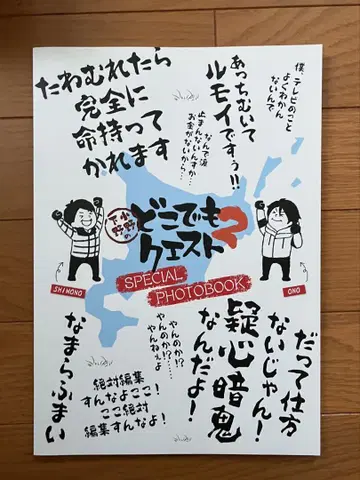 僕、テレビのこと
よくわかん
ないんで
あっちむいて
ルモイですぅ!!
たわむれたら
完全に
命持って
かれます
なんで涙
止まんないんすか…
お金がないから…
小野下野の
どこでも
クエスト2
SPECIAL
PHOTOBOOK
SHIMONO
ONO
だって仕方
ないじゃん!
疑心暗鬼
なんだよ!
やんのか!?
やんのか!?……
やんねぇよ
なまらふまい
絶対編集
すんなよここ!
ここ絶対
編集すんなよ!